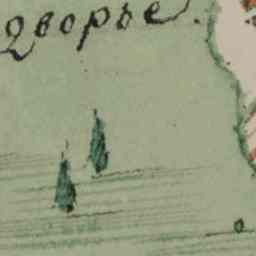 дворье.